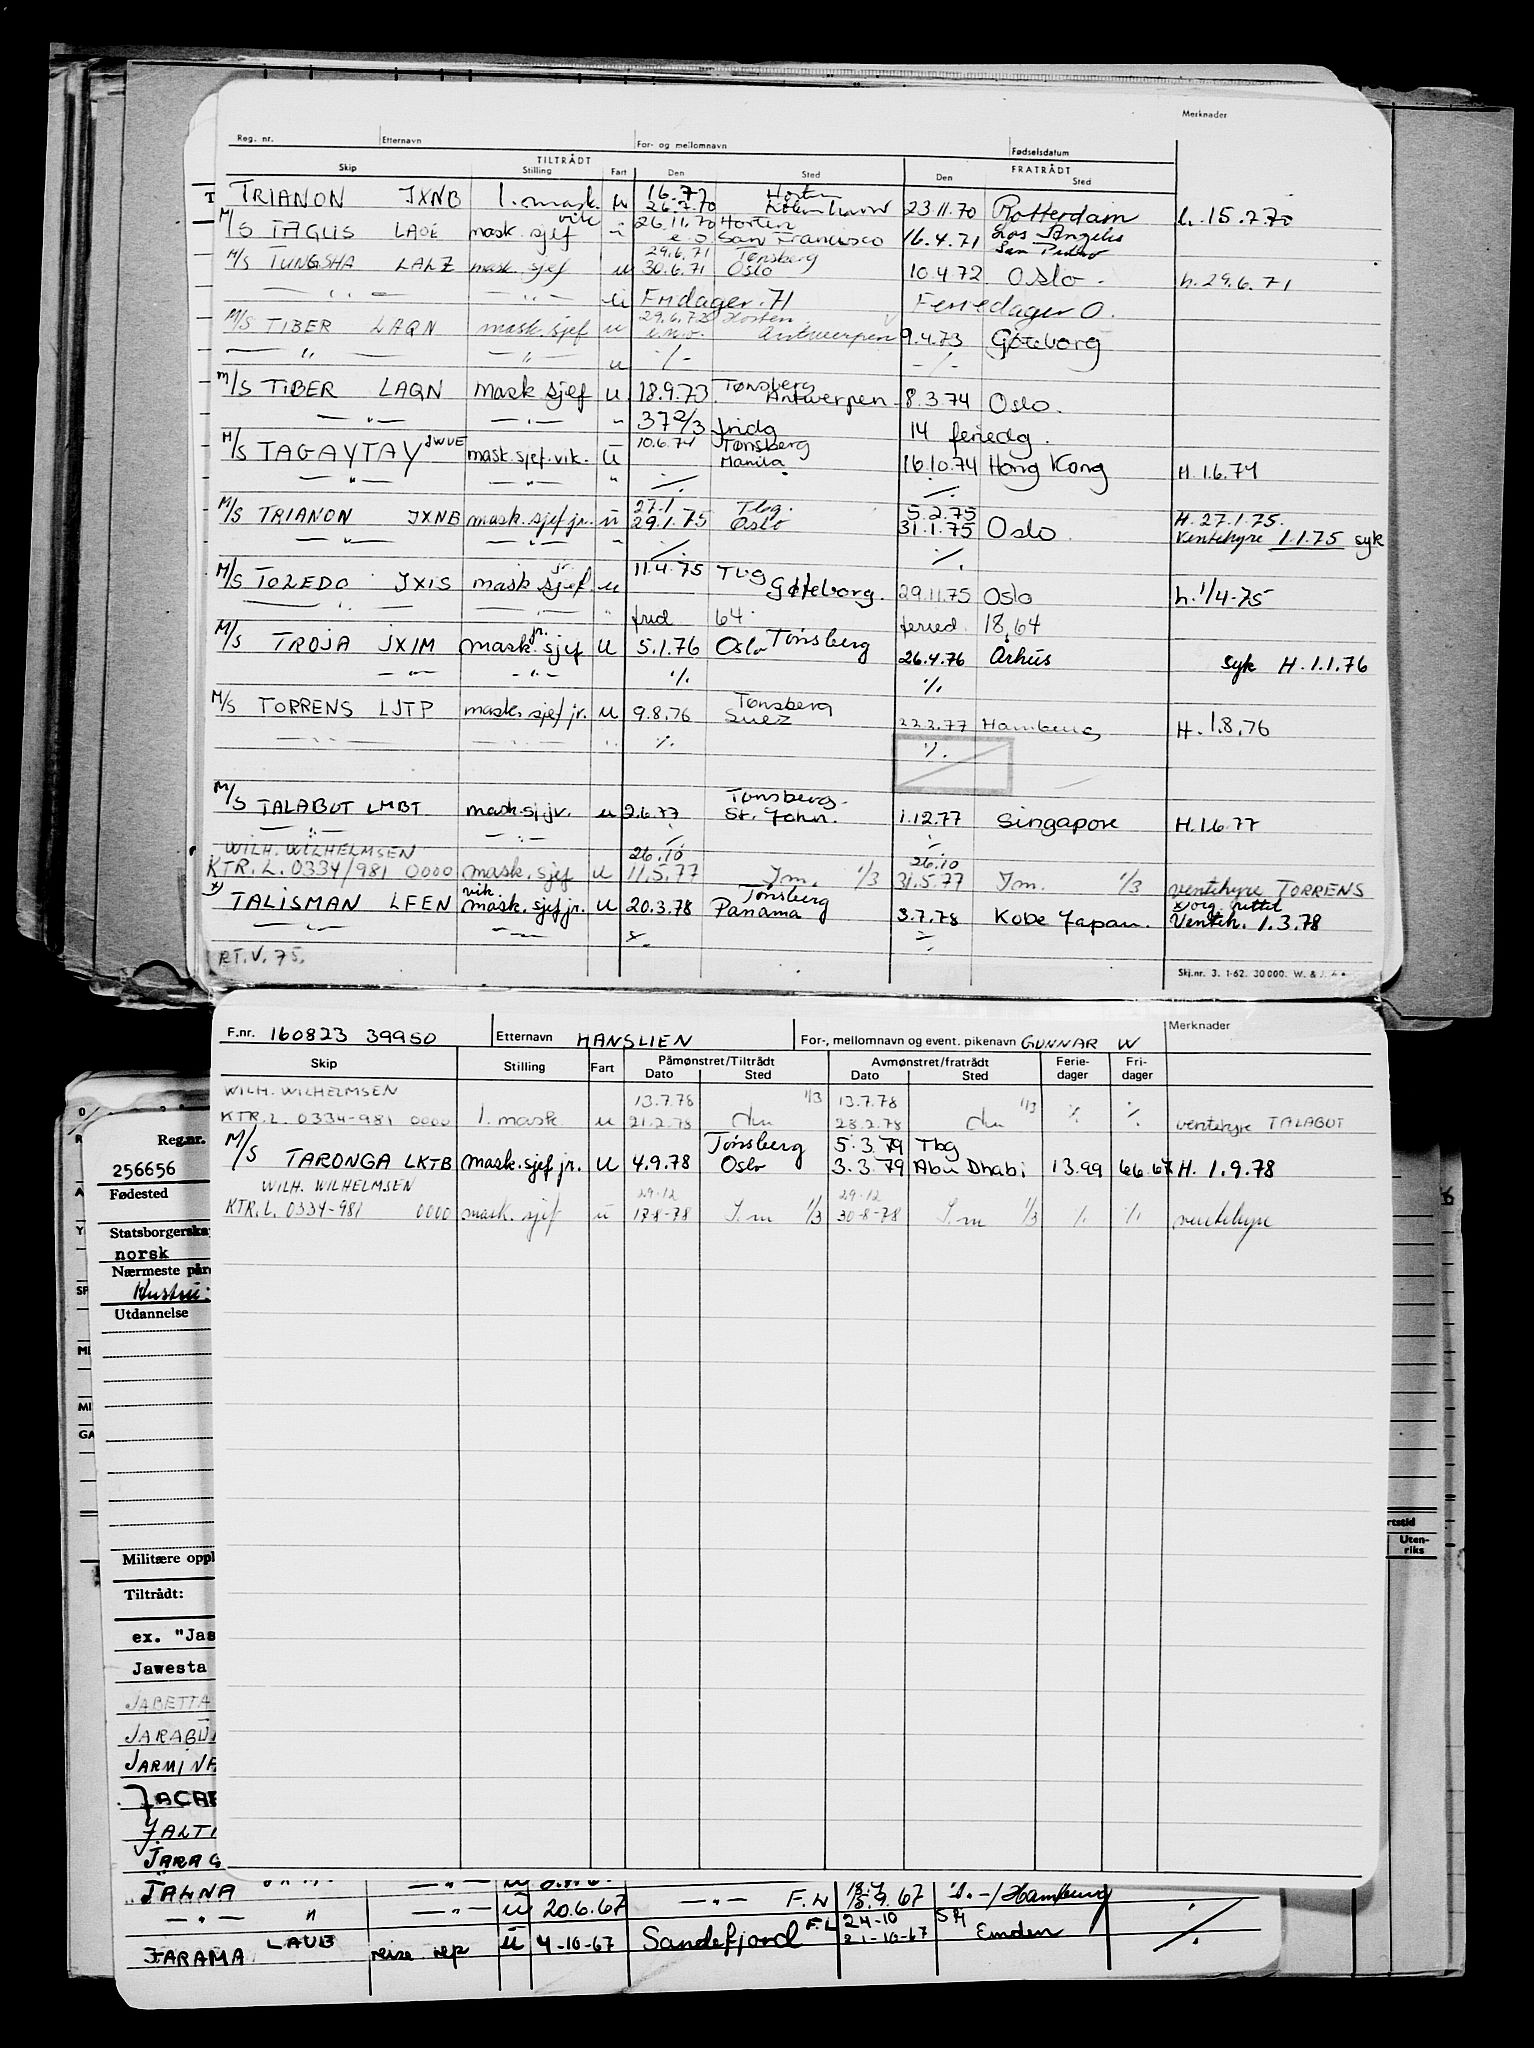 Merknader
Reg. nr. Etternavn For- og mellomnavn Fødselsdatum
TILTRÅDT FRATRÅDT
Skip Stilling Fart Den Sted Den Sted
TRIANON JXNB 1. mask. u 16.7.70 Horten
26.7.70 København 23.11.70 Rotterdam h. 15.7.70
M/S TAGUS LAOE mask. sjef vik u 26.11.70 Horten
e.o San Francisco 16.4.71 Los Angeles
San Pedro
M/S TUNGSHA LALZ mask. sjef u 29.6.71 Tønsberg
30.6.71 Oslo 10.4.72 Oslo. h. 29.6.71
— " — — " — u Fridager .71 Feriedager 0.
M/S TIBER LAQN mask. sjef u 29.6.72 Horten
e.m.o. Antwerpen 9.4.73 Gøteborg
— " — — " — u -/- -/-
M/S TIBER LAQN mask sjef u 18.9.73 Tønsberg
Antwerpen 8.3.74 Oslo.
— " — — " — " 37 2/3 fridg 14 feriedg.
M/S TAGAYTAY JWUE mask.sjef.vik. u 10.6.74 Tønsberg
Manila 16.10.74 Hong Kong H. 1.6.74
— " — — " — " ./. ./.
M/S TRIANON JXNB mask.sjef jr. u 27.1 Tbg. 5.2.75
29.1.75 Oslo 31.1.75 Oslo H. 27.1.75.
— " — — " — " ./. ./. Ventehyre 1.1.75 syk
M/S TOLEDO JXIS mask jr. sjef. u 11.4.75 Tbg
Gøteborg. 29.11.75 Oslo h. 1/4-75
— " — — " — " frid 64. feried. 18,64
M/S TROJA JXIM mask. jr. sjef u 5.1.76 Oslo Tønsberg 26.4.76 Århus syk H. 1.1.76
— " — — " — ./. ./.
M/S TORRENS LJTP mask. sjef jr. u 9.8.76 Tønsberg
Suez 22.2.77 Hamburg H. 1.8.76
— " — — " — " ./. ./.
M/S TALABOT LMBT mask.sj.jr. u 2.6.77 Tønsberg.
St. John. 1.12.77 Singapore H. 1.6.77
— " — — " — ./. ./.
WILH. WILHELMSEN 26.10 26.10
KTR.L. 0334/981 0000 mask. sjef u 11.5.77 Jm. 1/3 31.5.77 Jm. 1/3 ventehyre TORRENS
x) TALISMAN LFEN vik. mask. sjef jr. u 20.3.78 Tønsberg
Panama 3.7.78 Kobe Japan. x) org. rettet
Venteh. 1.3.78
— " — — " — ./. ./.
RT.V. 75.
Skj.nr. 3. 1-62. 30 000. W. & J. A.
F.nr. 160823 39950 Etternavn HANSLIEN For-, mellomnavn og event. pikenavn GUNNAR W Merknader
Skip Stilling Fart Påmønstret/Tiltrådt Avmønstret/fratrådt Ferie-dager Fri-dager
Dato Sted Dato Sted
WILH. WILHELMSEN 13.7.78 1/3 13.7.78 1/3
KTR.L. 0334-981 0000 1. mask. u 21.2.78 23.2.78 ./. ./. ventehyre TALABOT
M/S TARONGA LKTB mask.sjef jr. u 4.9.78 Tønsberg
Oslo 5.3.79 Tbg
3.3.79 Abu Dhabi 13.99 66.67 H. 1.9.78
WILH. WILHELMSEN 29.12 29.12
KTR.L. 0334-981 0000 mask. sjef u 17.8-78 J.m 1/3 30-8-78 J.m 1/3 ./. ./. ventehyre
Reg.nr.
256656
Fødested
Statsborgerska
norsk
Nærmeste pårø
Hustru:
Utdannelse
Militære oppl
Tiltrådt:
ex. "Jas
Jawesta
JABETTA
JARABU
JARMINA
JACAR
JALTI
JARAG
rtstid
Uten-
riks
JALNA — " — u
— " — " — " — u 20.6.67 — " — F.W 9.67 Hamburg
JARAMA LAUB reise rep u 4-10-67 Sandefjord F.L 24-10
21-10-67 Emden